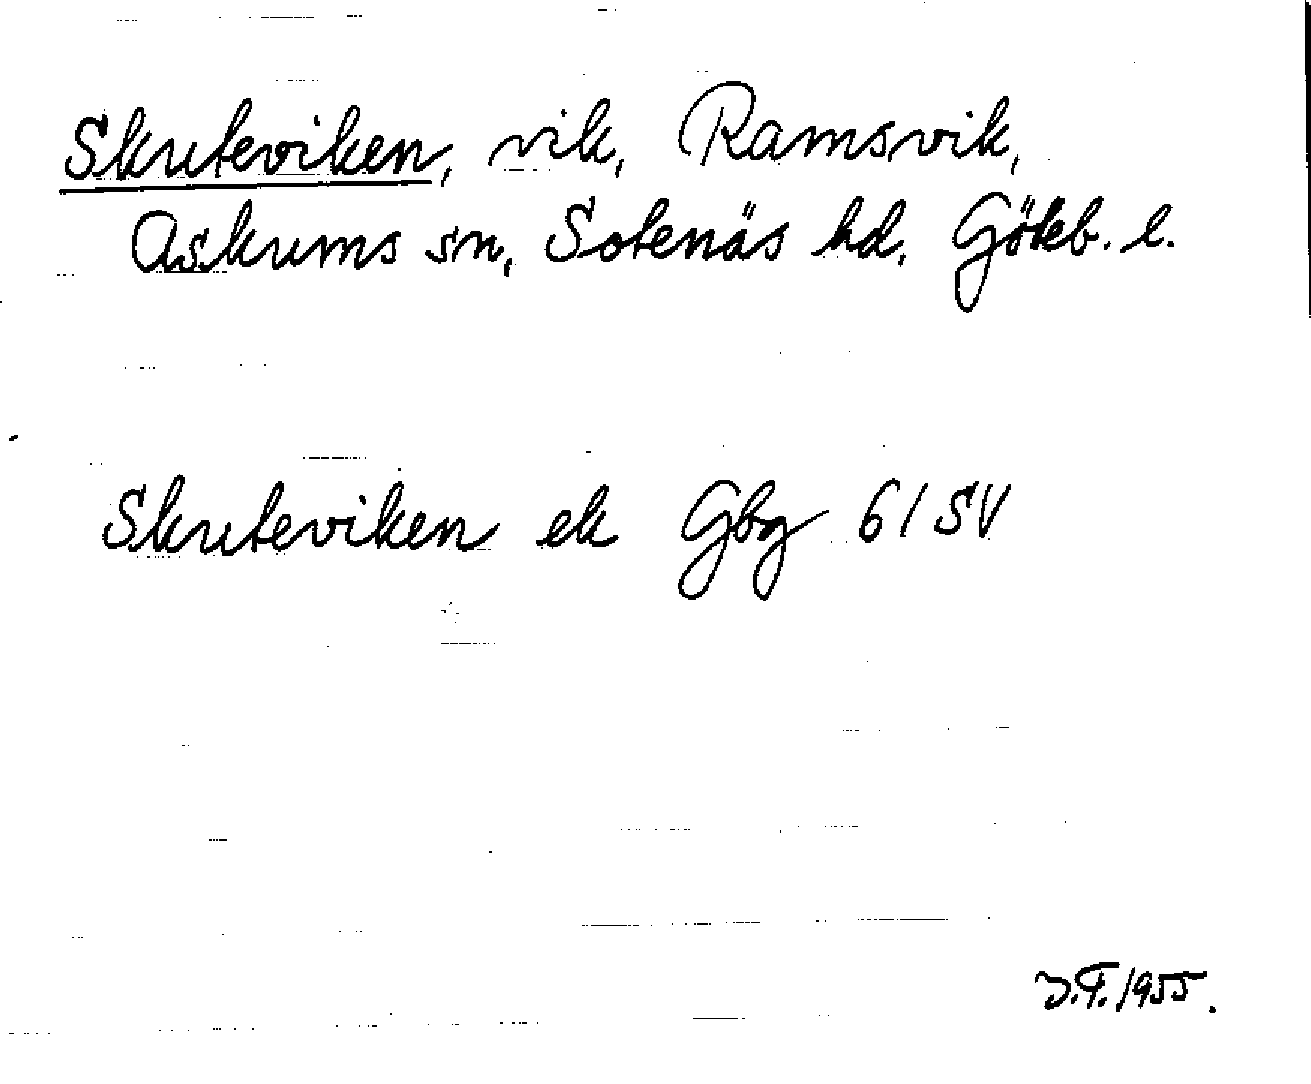 Skuteviken, vik, Ramsvik,
Askums sn, Sotenäs hd. Göteb. l.
Skuteviken ek Gbg 61 SV
J.F. 1955.